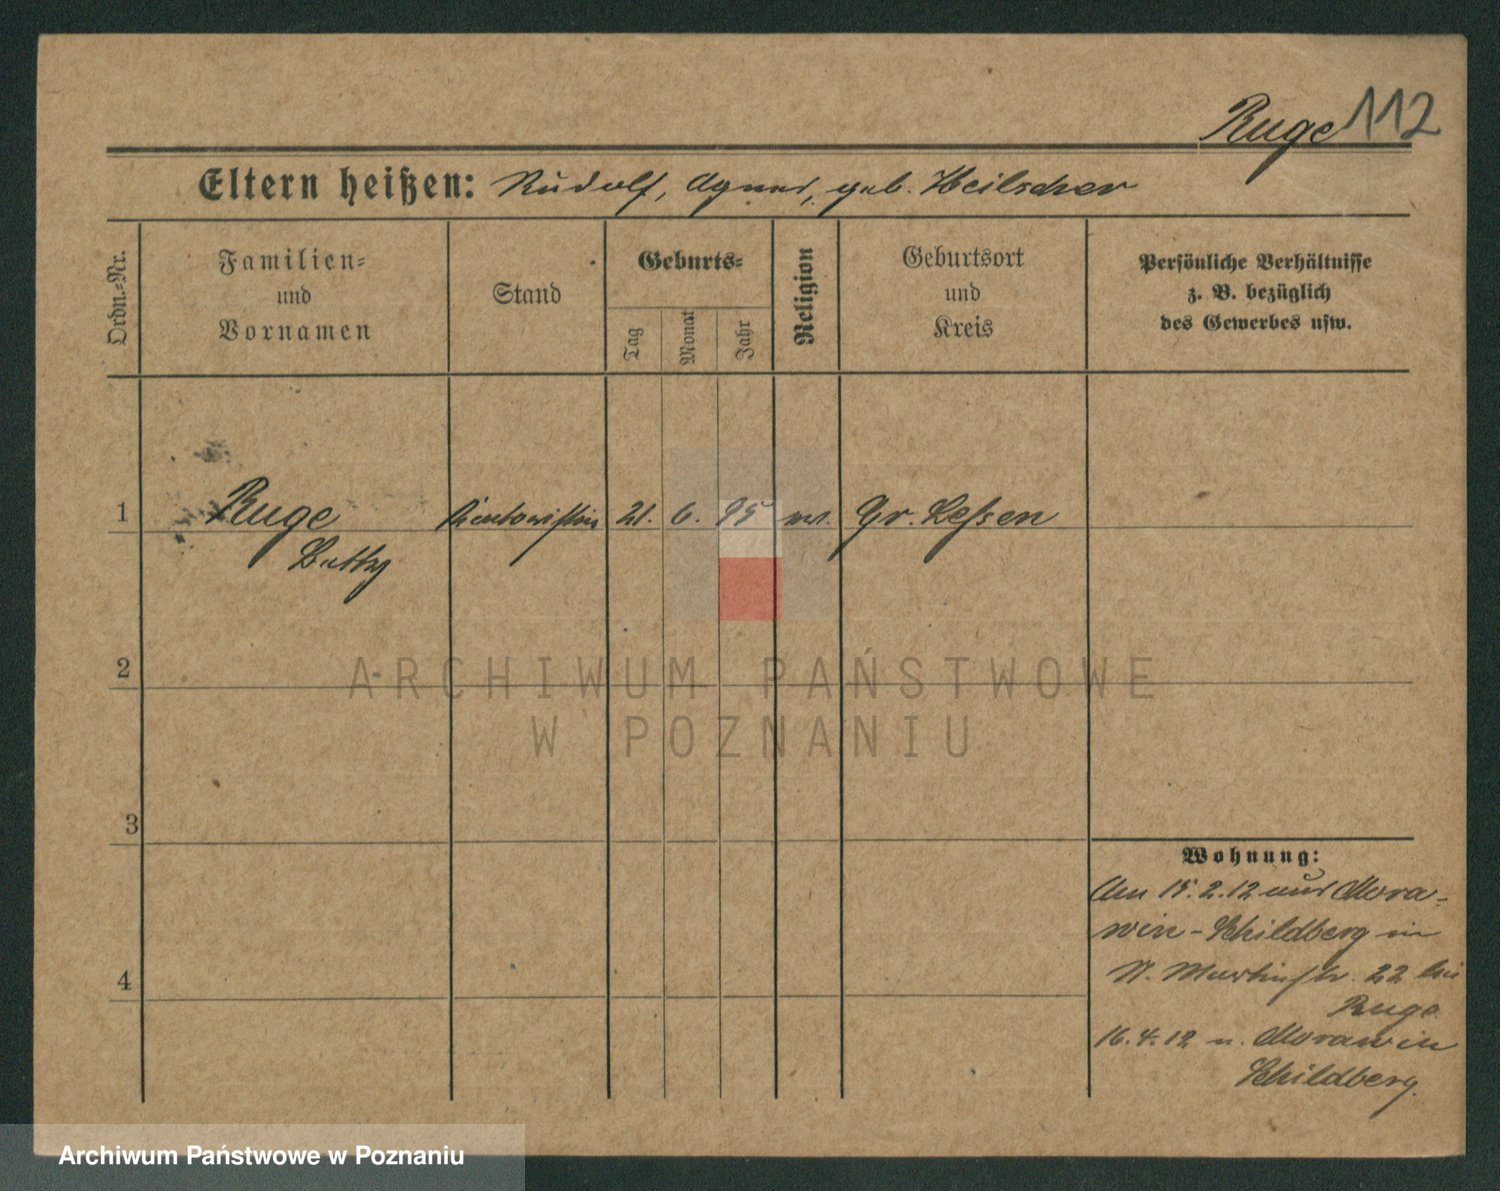 Ruge 112
Eltern heißen: Rudolf, Agnes, geb. Heilscher
Ordn.-Nr.
Familien-
und
Vornamen
Stand
Geburts-
Tag
Monat
Jahr
Religion
Geburtsort
und
Kreis
Persönliche Verhältnisse
z. B. bezüglich
des Gewerbes usw.
1 Ruge Kontoristin 21. 6. 95 Gr. Lessen
2
3
4
Wohnung:
Am 15.2.12 aus Mora-
win-Schildberg in
St. Martinstr. 22 bei
Ruge
16.4.12 n. Morawin
Schildberg.
ARCHIWUM PAŃSTWOWE
W POZNANIU
Archiwum Państwowe w Poznaniu